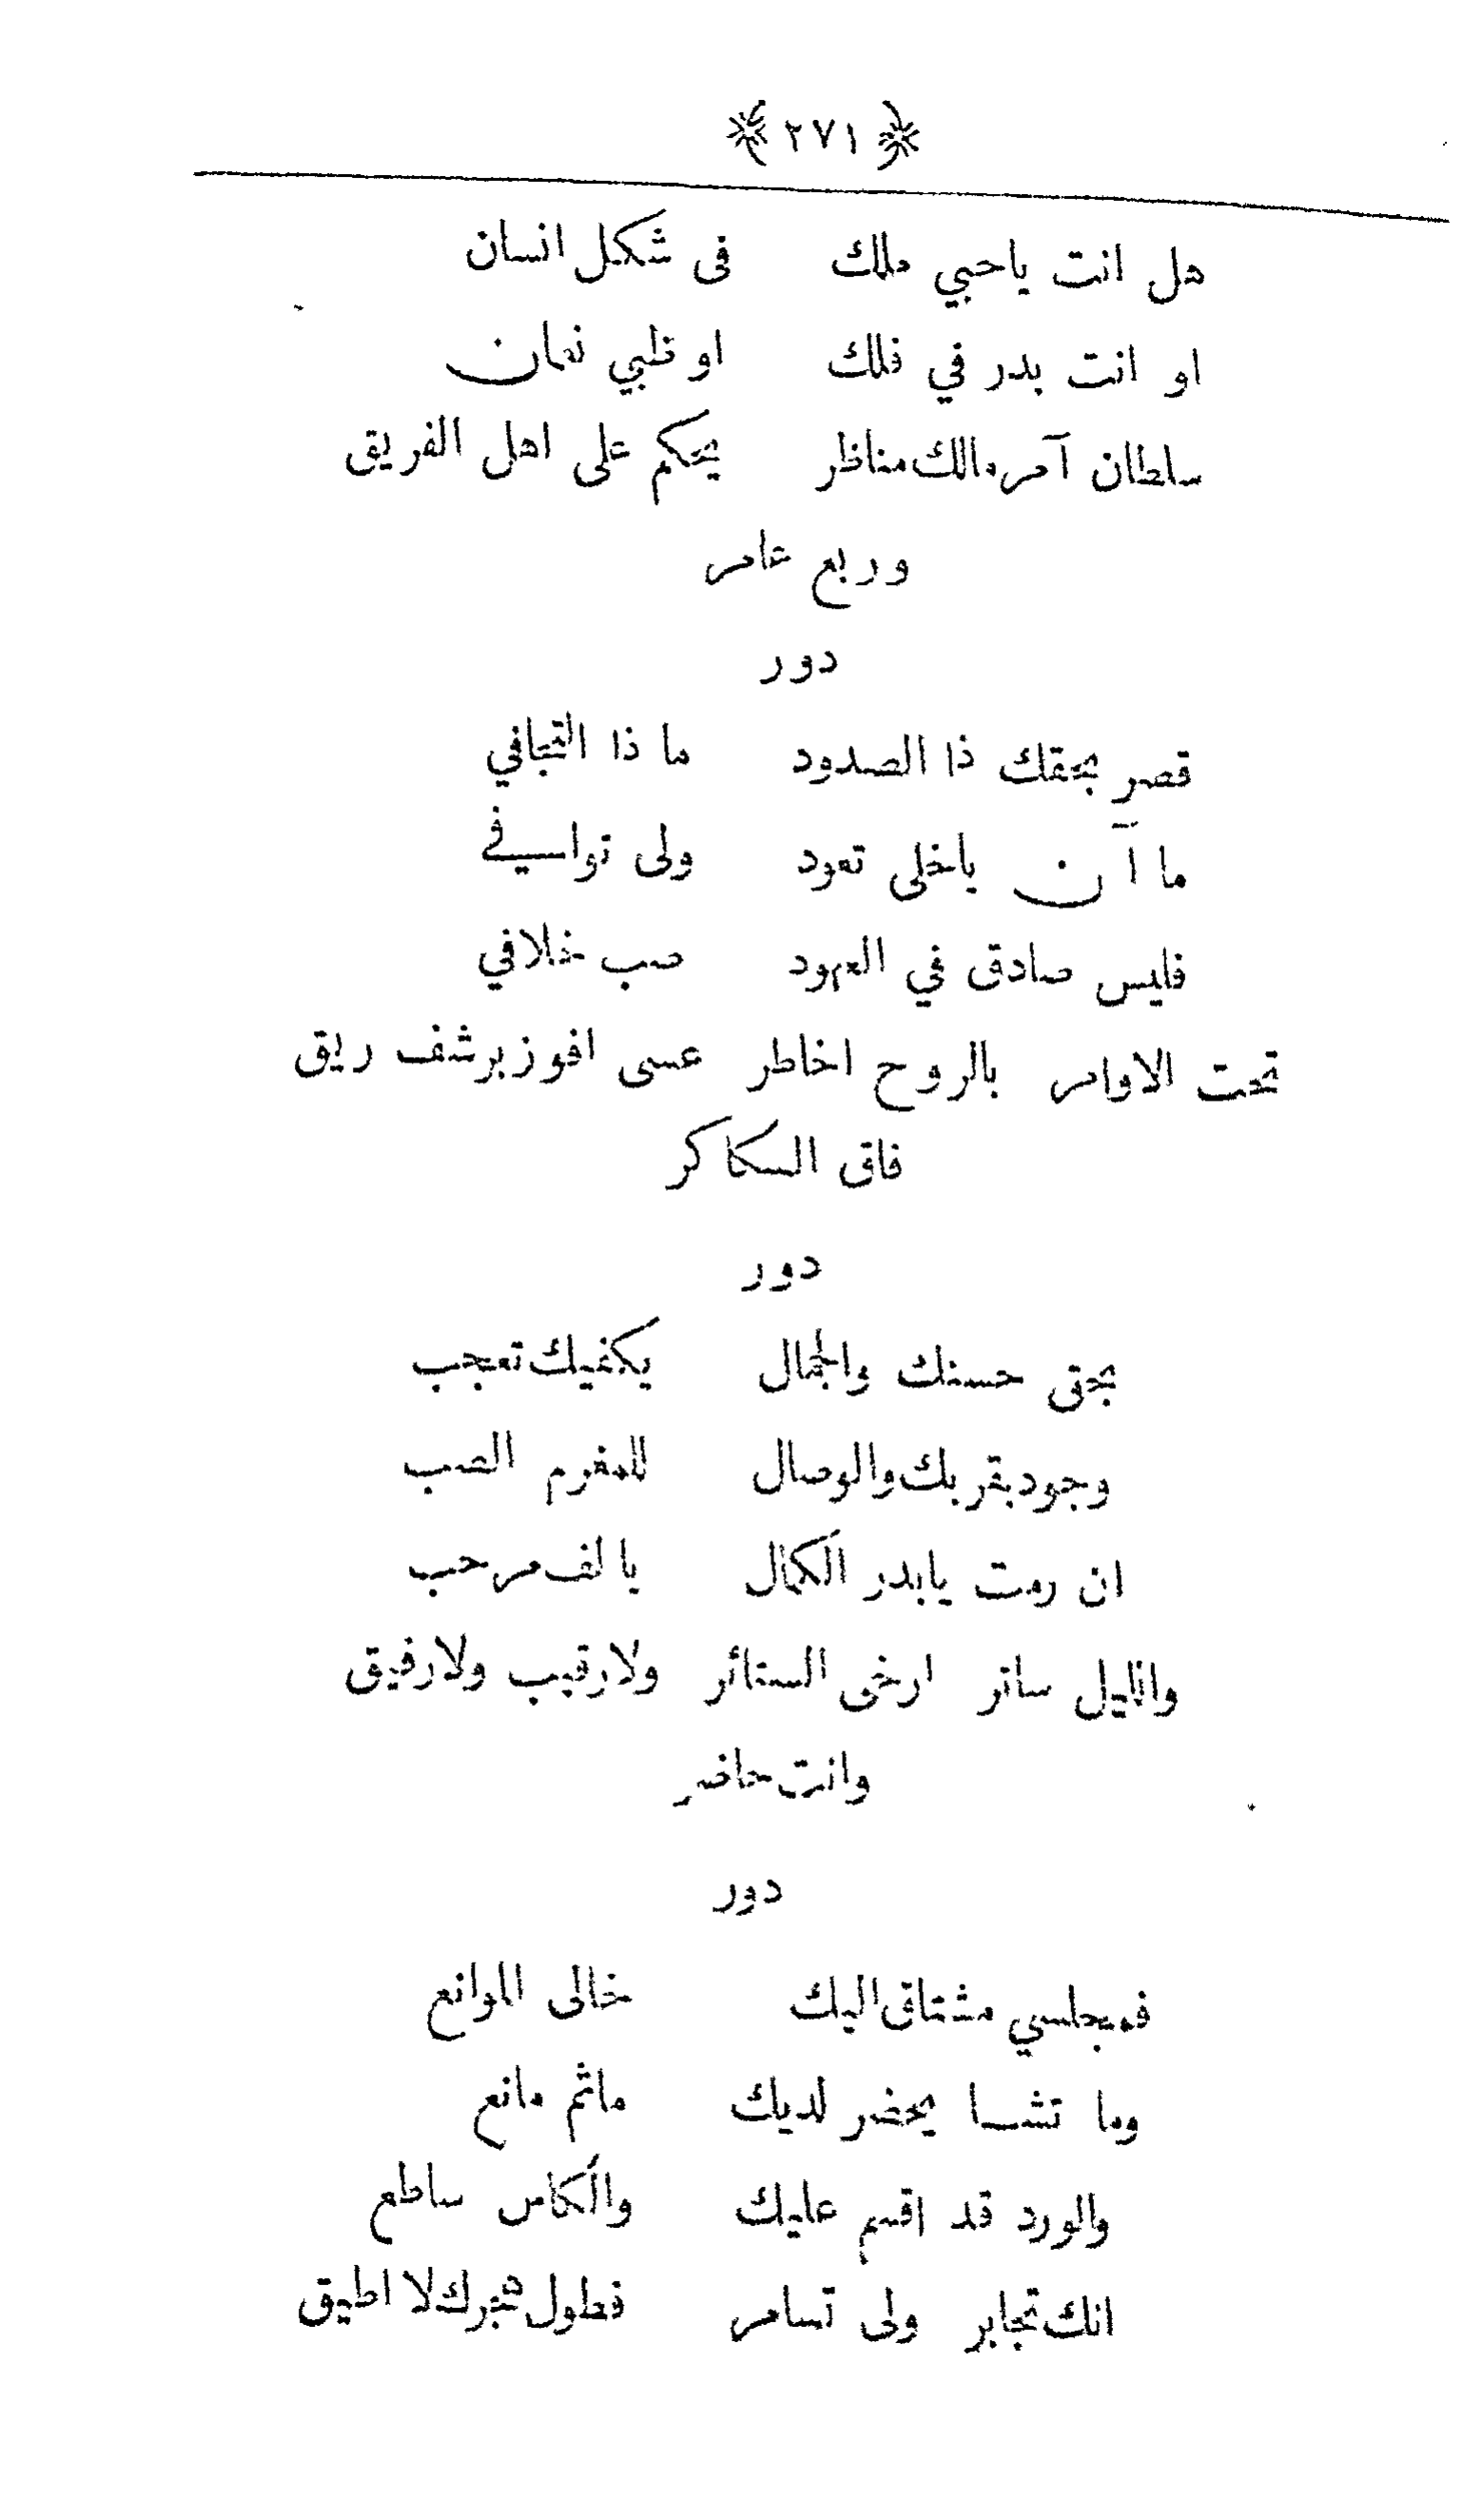 ٢٧١
هل انت ياحبي ملك فى شكل انسان
او انت بدر في فلك او ظبي نعمان
سلطان آمر مالك مناظر يحكم على اهل الفريق
وربع عامر
دور
قصر بحقك ذا الصدود ما ذا التجافي
ما آن ياخلى تعود ولى توافي
فليس صادق في العهود صب خلافي
تحت الاوامر بالروح اخاطر عسى افوز برشف ريق
فاق السكاكر
دور
بحق حسنك والجمال يكفيك تعجب
وجود بقربك والوصال للمغرم الصب
ان رمت يابدر الكمال يالف مرحب
والليل ساتر ارخى الستائر ولا رقيب ولا رفيق
وانت حاضر
دور
فمجلسي مشتاق اليك خالى الموانع
وما تشا يحضر لديك ماثم مانع
والورد قد اقسم عليك والكاس ساطع
انك تجابر ولى تسامر فطول هجرك لا اطيق